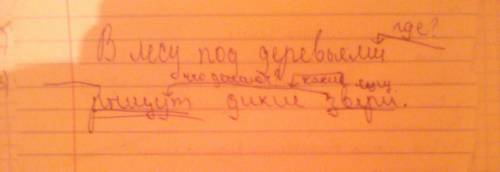 где?
В лесу под деревьями
что делают? какие
рыщут дикие звери.